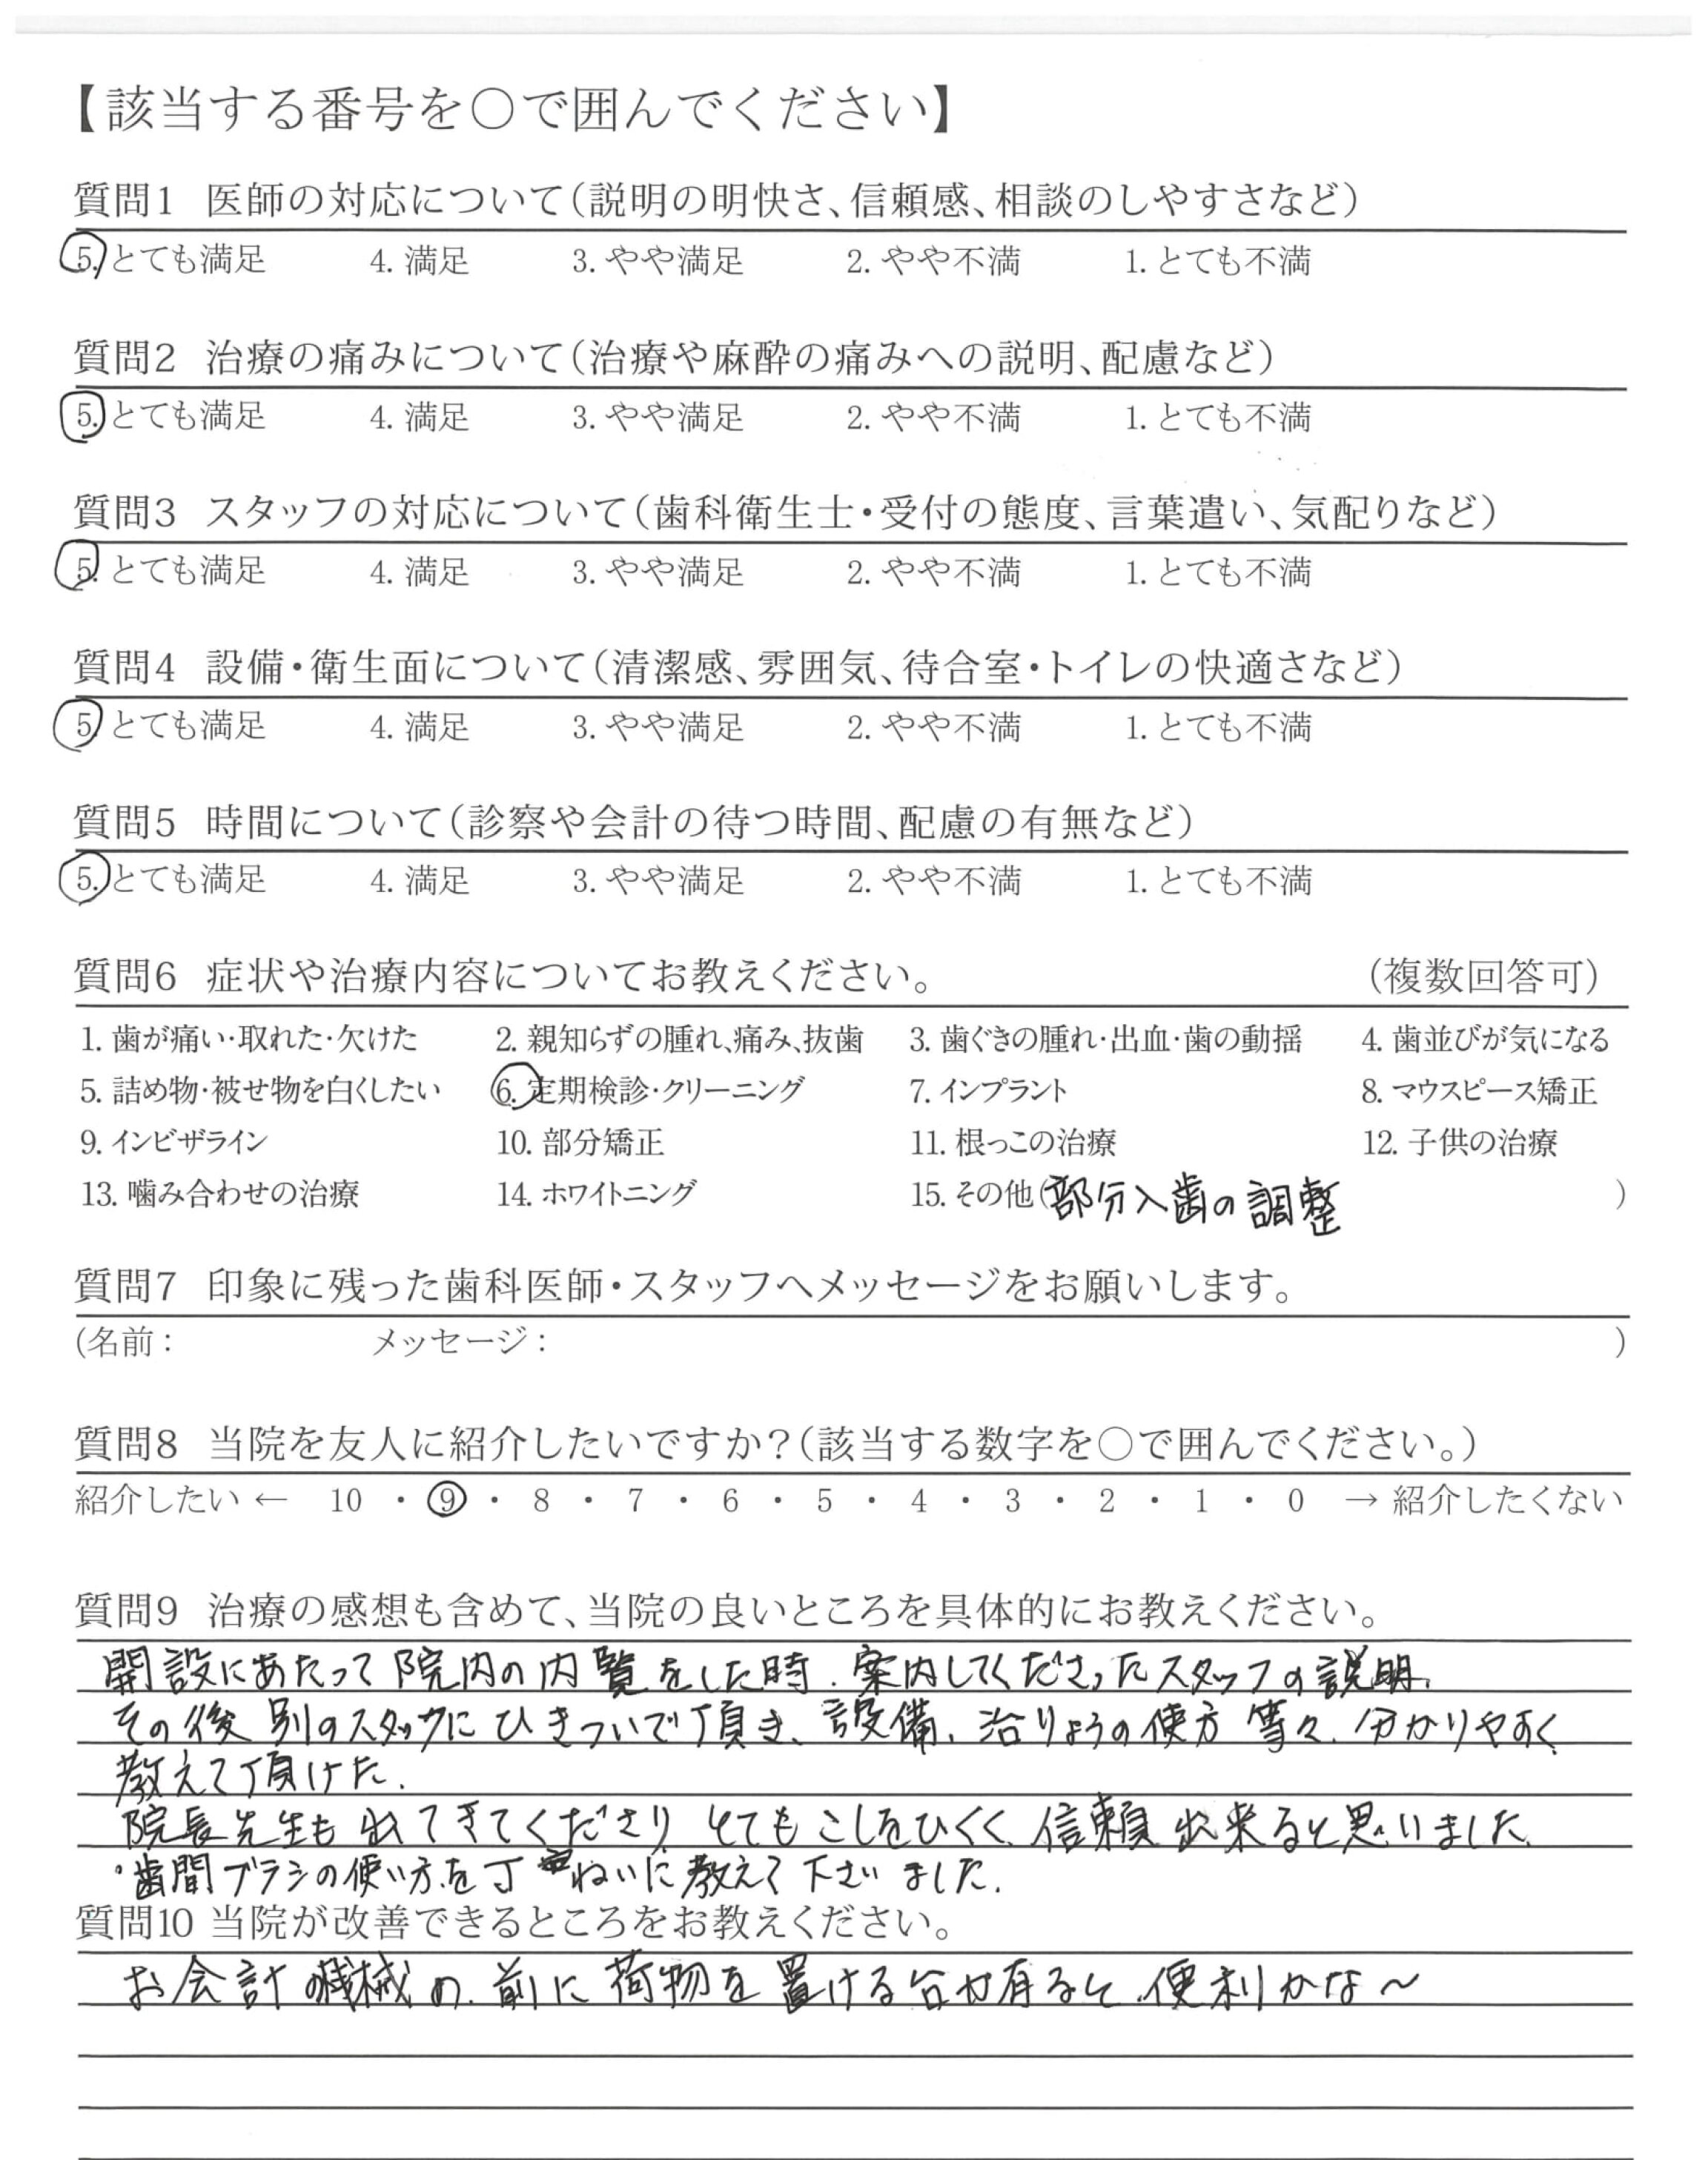 【該当する番号を○で囲んでください】
質問1 医師の対応について（説明の明快さ、信頼感、相談のしやすさなど）
5. とても満足 4. 満足 3. やや満足 2. やや不満 1. とても不満
質問2 治療の痛みについて（治療や麻酔の痛みへの説明、配慮など）
5. とても満足 4. 満足 3. やや満足 2. やや不満 1. とても不満
質問3 スタッフの対応について（歯科衛生士・受付の態度、言葉遣い、気配りなど）
5. とても満足 4. 満足 3. やや満足 2. やや不満 1. とても不満
質問4 設備・衛生面について（清潔感、雰囲気、待合室・トイレの快適さなど）
5. とても満足 4. 満足 3. やや満足 2. やや不満 1. とても不満
質問5 時間について（診察や会計の待つ時間、配慮の有無など）
5. とても満足 4. 満足 3. やや満足 2. やや不満 1. とても不満
質問6 症状や治療内容についてお教えください。 （複数回答可）
1. 歯が痛い・取れた・欠けた 2. 親知らずの腫れ、痛み、抜歯 3. 歯ぐきの腫れ・出血・歯の動揺 4. 歯並びが気になる
5. 詰め物・被せ物を白くしたい 6. 定期検診・クリーニング 7. インプラント 8. マウスピース矯正
9. インビザライン 10. 部分矯正 11. 根っこの治療 12. 子供の治療
13. 噛み合わせの治療 14. ホワイトニング 15. その他(部分入歯の調整 )
質問7 印象に残った歯科医師・スタッフへメッセージをお願いします。
(名前： メッセージ： )
質問8 当院を友人に紹介したいですか？（該当する数字を○で囲んでください。）
紹介したい ← 10 ・ 9 ・ 8 ・ 7 ・ 6 ・ 5 ・ 4 ・ 3 ・ 2 ・ 1 ・ 0 → 紹介したくない
質問9 治療の感想も含めて、当院の良いところを具体的にお教えください。
開設にあたって院内の内覧をした時、案内してくださったスタッフの説明、
その後 別のスタッフにひきついで頂き、設備、治りょうの使方 等々、分かりやすく
教えて頂けた。
院長先生も出てきてくださり とても こしをひくく、信頼 出来ると思いました。
・歯間ブラシの使い方を丁ねいに教えて下さいました。
質問10 当院が改善できるところをお教えください。
お会計の機械の、前に 荷物を置ける台が有ると、便利かな〜